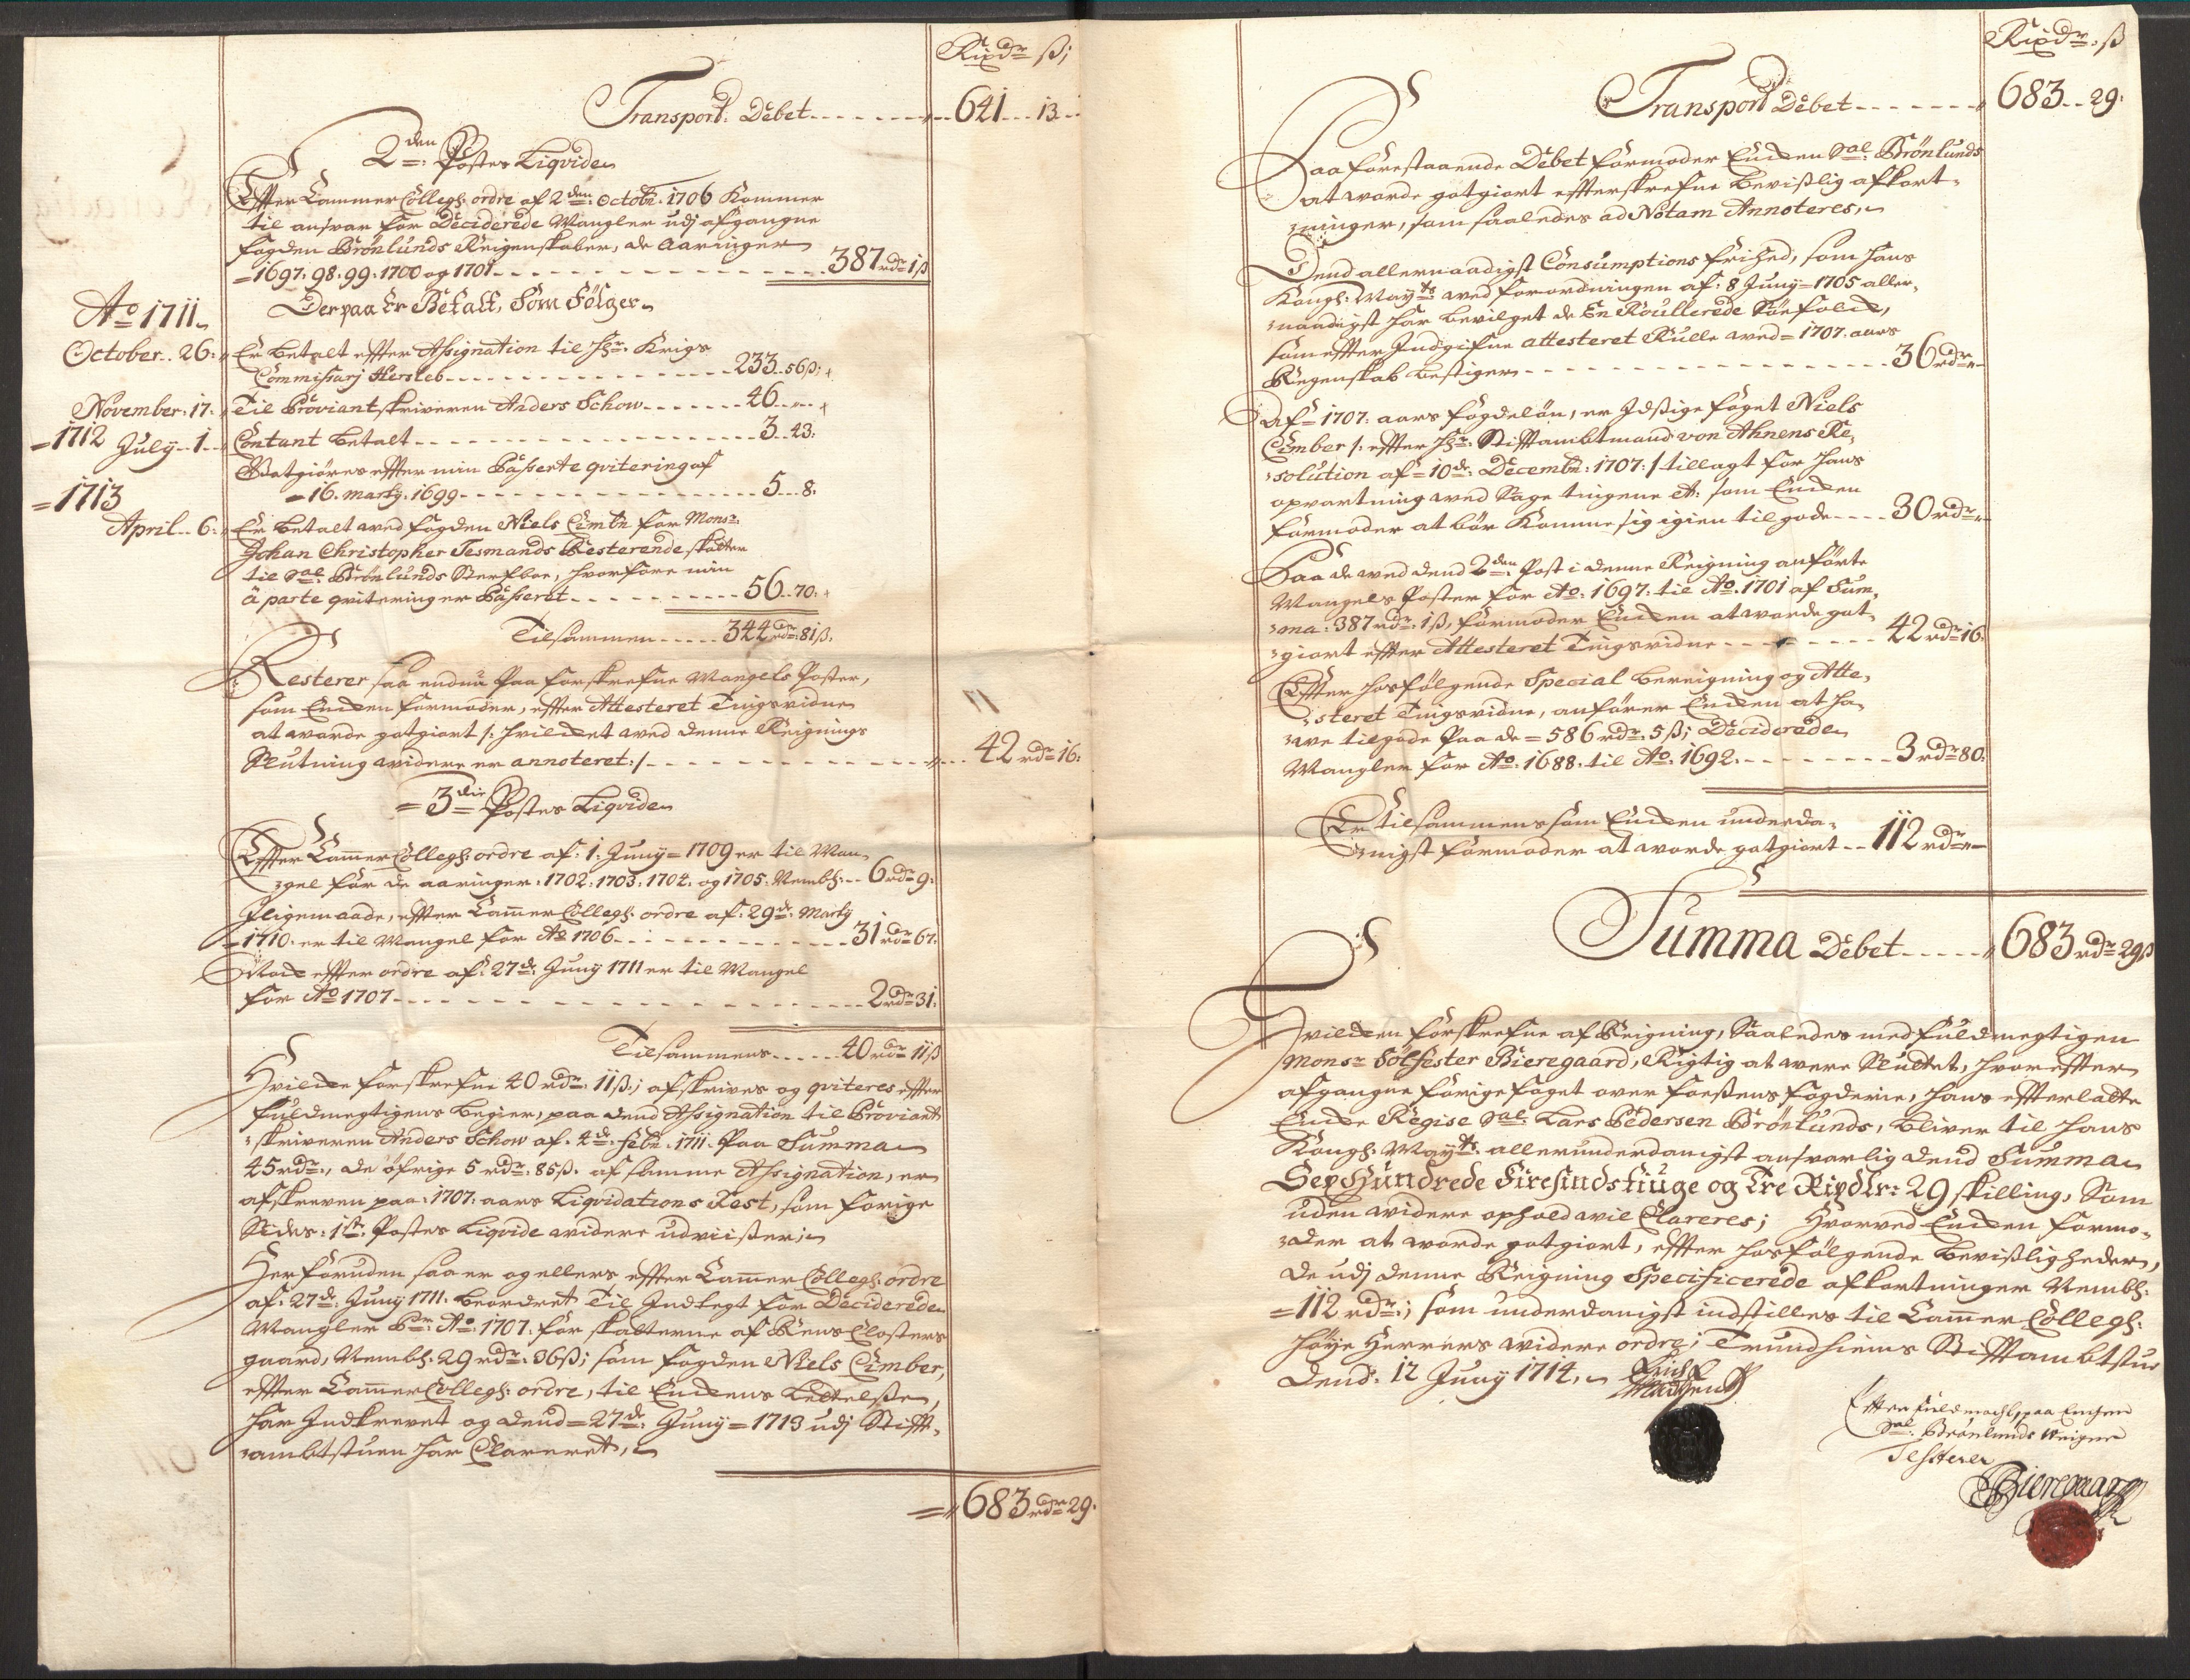 Rixdr ß;
Transport. Debet - - - - - - - 641 - - 13 -
2den Postes Liqvide
Effter Cammer Collegh: ordre af 2den: Octobr. 1706 Kommer
til ansvar for Deciderede Mangler udj afgangne
fogden Brönlunds Reigenskaber, de Aaringer
=1697: 98: 99: 1700 og 1701 - - - - - - 387 rdr 1ß
Derpaa Er Betalt, Som Fölger
Ao 1711
October. 26: Er betalt effter Assignation til Hr: Krigs
Commissarj Hersleb - - - - - - - 233 - 56ß;
November. 17: Til Proviantskriveren Anders Schow - - - - - 46 - "
=1712 July - 1 - Contant betalt - - - - - - - 3 - 43:
Godtgiöres effter min Passerte qvitering af
=1713
16. marty. 1699 - - - - - - - 5 - 8.
April - 6: Er betalt ved fogden Niels Cimbr for Monsr:
Johan Christopher Tesmands Resterende skatter
til Sal: Brönlunds Sterfboe, hvorfore min
à parte qvitering er Passeret - - - - - - 56 - 70:
Tilsammen - - - - 344 rdr 81ß.
Resterer saa endnu Paa forskrefne Mangels Poster,
som Encken formoder, effter Attesteret Tingsvidne
at worde gotgiort /: hvilcket ved denne Reignings
Slutning widere er annoteret :/ - - - - - - - - - 42 rdr 16:
=3die Postes Liqvide
Effter Cammer Collegh: ordre af: 1: Juny = 1709 er til Man-
gel for de aaringer: 1702: 1703: 1704: og 1705: Nembl: - 6 rdr 9:
Iligemaade, effter Cammer Collegh: ordre af: 29de: Marty
=1710: er til Mangel for Ao 1706 - - - - - - 31 rdr 67:
Noch effter ordre af: 27de: Juny 1711 er til Mangel
for Ao 1707 - - - - - - - - 2 rdr 31:
Tilsammens - - - - 40 rdr 11ß
Hvilcke forskrefne 40 rdr: 11ß; afskrives og qviteres effter
fuldmegtigens begier, paa dend Assignation til Proviant
skriveren Anders Schow af: 4de: Febr: 1711. Paa Summa
45 rdr:, de öfrige 5 rdr: 85ß. af samme Assignation, er
afskreven paa: 1707: aars Liqvidations Rest, som forige
Sides: 1ste: Postes Liqvide widere udviiser;
Herforuden saa er og ellers effter Cammer Collegh: ordre
af: 27de: Juny 1711. beordret Til Indtegt for Deciderede
Mangler Pr: Ao: 1707: for skatterne af Rens Closters
gaard, Nembl: 29 rdr: 36ß; som fogden Niels Cimber,
effter Cammer Collegh: ordre, til Enckens Lettelse,
har Indkrevet og dend = 27de: Juny = 1713 udj Stifft-
ambtstuen har Clareret,
= 683 rdr 29.
Rixdr: ß
Transport Debet - - - - - - - 683 - - 29:
Paa forestaaende Debet formoder Encken Sal: Brönlunds
at worde gotgiort effterskrefne bevislig afkort-
ninger, som saaledes ad Notam Annoteres,
Dend allernaadigst Consumptions frihed, som Hans
Kongl: Mayts: ved forordningen af: 8 Juny = 1705 aller-
naadigst har bevilget de En Roullerede Söefolck,
som effter Indgifne attesteret Rulle ved = 1707. aars
Regenskab bestiger - - - - - - - - 36 rdr "
Af = 1707: aars fogdelön, er Idßige foget Niels
Cimber /: effter Hr: Stifftambtmand von Ahnens Re-
solution af = 10de: Decembr: 1707 :/ tillagt for hans
opvartning ved Sage tingene &: som Encken
formoder at bör Komme sig igien tilgode - - - - 30 rdr "
Paa de ved dend 2den Post i denne Reigning anförte
Mangels Poster for Ao: 1697: til Ao. 1701 af Sum-
ma: 387 rdr: 1ß, formoder Encken at worde got-
giort effter Attesteret Tingsvidne - - - - - - 42 rdr 16:
Effter hosfölgende Special bereigning og Atte-
steret Tingsvidne, anförer Encken at ha-
we tilgode Paa de = 586 rdr: 5ß; Deciderede
Mangler for Ao: 1688. til Ao: 1692. - - - - - - 3 rdr 80:
Er tilsammens som Encken underda-
nigst formoder at worde gotgiort - - 112 rdr "
Summa Debet - - - - - 683 rdr 29ß
Hvilcken forskrefne af Reigning, Saaledes med fuldmegtigen
Monsr Sölfester Bieregaard, Rigtig at were Sluttet, hvoreffter
afgangne forige foget over Fosens fogderie, hans effterlatte
Encke Regise Sal: Lars Pedersen Brönlunds, bliver til Hans
Kongl: Mayts: allerunderdanigst ansvarlig dend Summa
Sex Hundrede Firesindstiuge og Tre Rixdlr: 29 skilling, Som
uden widere ophold wil Clareres; Hvorved Encken formo-
der at worde gotgiort, effter hosfölgende beviisligheder,
de udj denne Reigning Specificerede afkortninger Nembl:
=112 rdr:; som underdanigst indstilles til Cammer Collegh:
höye Herrers widere ordre; Trundhiems Stifftambtstue
dend. 12 Juny 1714,
Effter fuldmagt, paa Enchen
Sal: Brönlunds Weigne
Testerer
Bieregaard